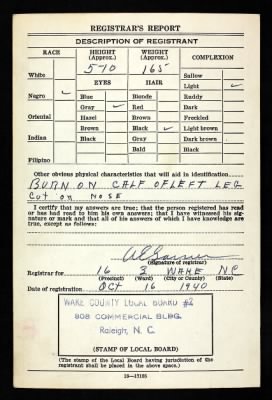 REGISTRAR'S REPORT
DESCRIPTION OF REGISTRANT
RACE HEIGHT (Approx.) WEIGHT (Approx.) COMPLEXION
White 5-10 165 Sallow
EYES HAIR Light ✓
Negro ✓ Blue Blonde Ruddy
Gray ✓ Red Dark
Oriental Hazel Brown Freckled
Brown Black ✓ Light brown
Indian Black Gray Dark brown
Bald Black
Filipino
Other obvious physical characteristics that will aid in identification
BURN ON CALF OF LEFT LEG
Cut on NOSE
I certify that my answers are true; that the person registered has read or has had read to him his own answers; that I have witnessed his signature or mark and that all of his answers of which I have knowledge are true, except as follows:
(Signature of registrar)
Registrar for 16 3 WAKE NC
(Precinct) (Ward) (City or County) (State)
Date of registration Oct 16 1940
WAKE COUNTY LOCAL BOARD #2
808 COMMERCIAL BLDG.
Raleigh, N. C.
(STAMP OF LOCAL BOARD)
(The stamp of the Local Board having jurisdiction of the registrant shall be placed in the above space.)